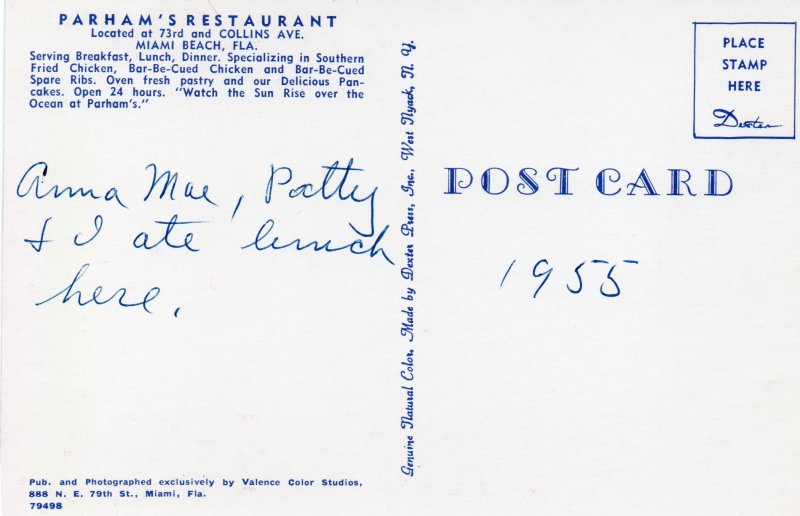 PARHAM'S RESTAURANT
Located at 73rd and COLLINS AVE.
MIAMI BEACH, FLA.
Serving Breakfast, Lunch, Dinner. Specializing in Southern
Fried Chicken, Bar-Be-Cued Chicken and Bar-Be-Cued
Spare Ribs. Oven fresh pastry and our Delicious Pan-
cakes. Open 24 hours. "Watch the Sun Rise over the
Ocean at Parham's."
Anna Mae, Patty
& I ate lunch
here.
Pub. and Photographed exclusively by Valence Color Studios,
888 N. E. 79th St., Miami, Fla.
79498
Genuine Natural Color, Made by Dexter Press, Inc., West Nyack, N. Y.
PLACE
STAMP
HERE
Dexter
POST CARD
1955